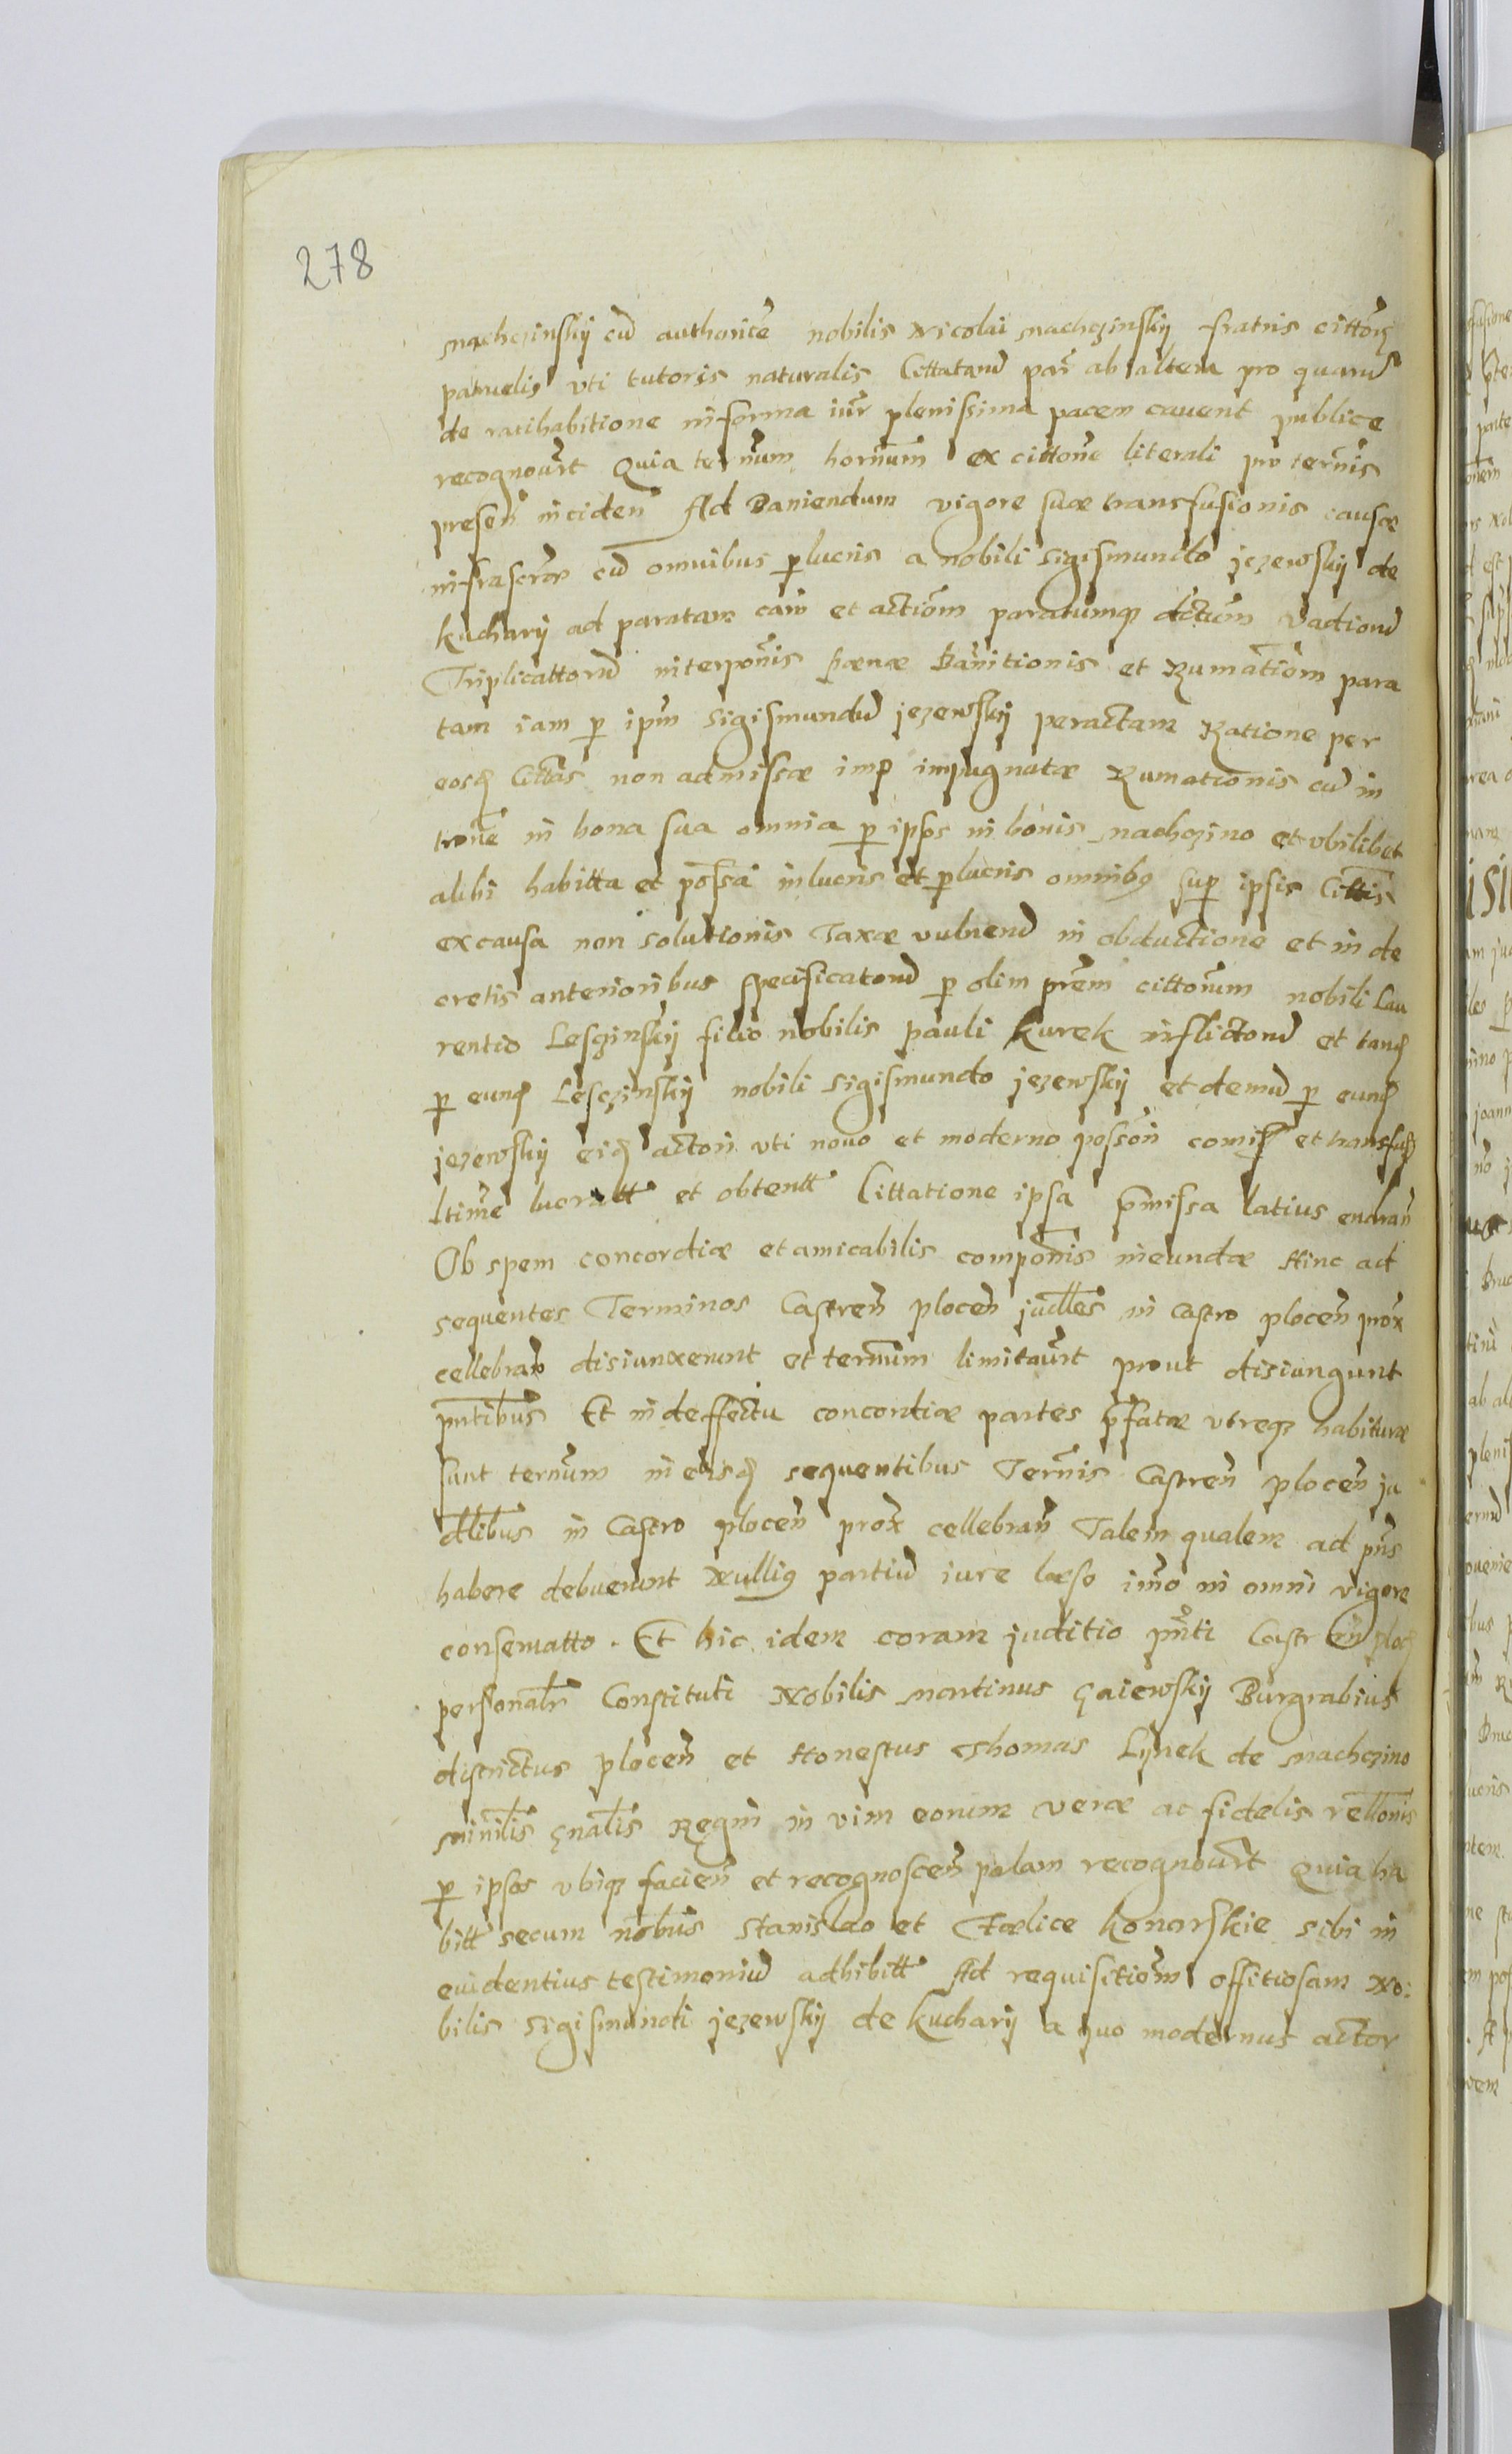 278
Machczinskij cu᷃ authorite᷃ nobilis Nicolai Machczinskij fratris cittor᷃
patruelis vti tutoris naturalis Cittatand par᷃ ab altera pro quarud
de ratihabitione in forma iur᷃ plenissima pacem cauent publice
recognour᷃t Quia ter᷃num hor᷃num ex citton᷃e literali pro ter᷃nis
presen᷃ inciden᷃ Ad Baniendum vigore suæ transfusionis causæ
infrascr᷃ cu᷃ omnibus ꝑlucris a nobili Sigismundo Jezewskij de
Kucharij ad paratam cam᷃ et actio᷃m paratumq dictio᷃m vadioru᷃
Triplicattoru᷃ interpon᷃is pœnæ Ban᷃itionis et Rumatio᷃m para
tam iam ꝑ ipm᷃ Sigismundu᷃ Jezewskij peractam Ratione per
eosd᷃ Cittas non admissæ imp impugnatæ Rumationis cu᷃ in
tron᷃e in bona sua omnia ꝑ ipsos in bonis Machczino et vbilibet
alibi habitta et poss᷃a in lucris et ꝑlucris omnibq sup ipsis Cittis
ex causa non solutionis Taxæ vulneru᷃ in obductione et in de
cretis anterioribus specificatoru᷃ ꝑ olim pr᷃em citton᷃um nobili Lau
rentio Lesczinskij filio nobilis Pauli Kurek inflictoru᷃ et tand᷃
ꝑ eund᷃ Lesczinskij nobili Sigismundo Jezewskij et demu᷃ ꝑ eund᷃
Jezewskij eid᷃ actori vti nouo et moderno posson᷃ comiss et transfus
ltime᷃ lucratt et obtentt Cittatione ipsa p᷃missa latius enarran᷃
Ob spem concordiæ et amicabilis compon᷃is ineundæ Hinc ad
sequentes Terminos Castren᷃ Plocen᷃ judlles in Castro Plocen᷃ prox᷃
cellebran᷃ disiunxerunt et ter᷃num limitaur᷃t prout disiungunt
pn᷃tibus Et in deffectu concordiæ partes p᷃fatæ vtreqz habituræ
sunt ter᷃num in eisd᷃ sequentibus Ter᷃nis Castren᷃ Plocen᷃ ju
dlibus in Castro Plocen᷃ prox᷃ cellebran᷃ Talem qualem ad pn᷃s
habere debuerunt Nulliq partiu᷃ iure læso imo᷃ in omni vigore
conseruatto. Et hic idem coram juditio pn᷃ti Castren᷃ Ploc᷃
personalr᷃ Constituti Nobilis Martinus Gaiewskij Burgrabius
districtus Plocen᷃ et Honestus Thomas Lynek de Machczino
Minilis Gnalis Regni in vim eorum veræ ac fidelis rellonis
ꝑ ipsos vbiqz facien᷃ et recognoscen᷃ palam recognour᷃t Quia ha
bitt secum nobus᷃ Stanislao et Fœlice Konarskie sibi in
euidentius testimoniu᷃ adhibitt Ad requisitio᷃m offitiosam No:
bilis Sigismundi Jezewskij de Kucharij a quo modernus actor